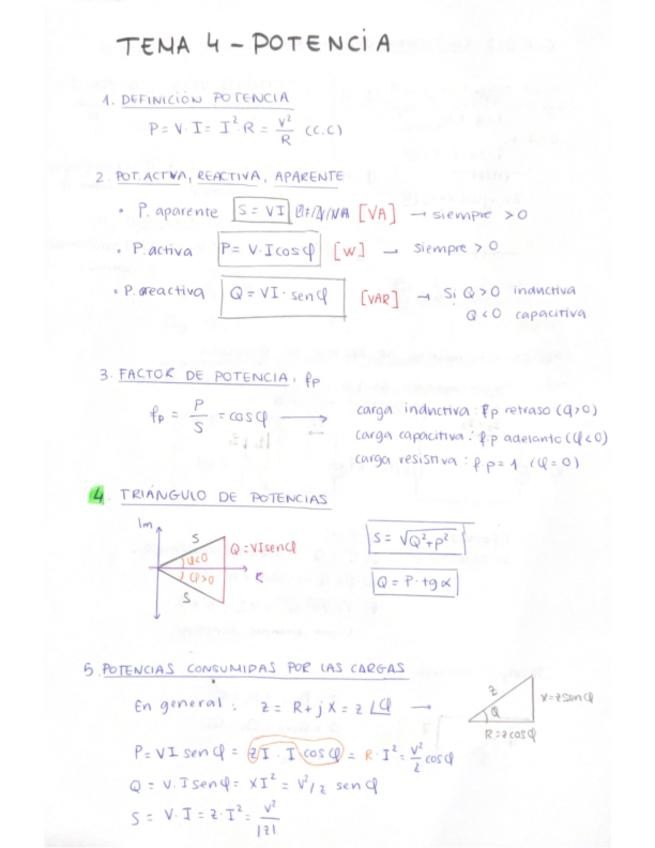 TEMA 4 - POTENCIA
1. DEFINICIÓN POTENCIA
P = V · I = I² · R = V²/R (C.C)
2. POT. ACTIVA, REACTIVA, APARENTE
• P. aparente S = VI [VA] → siempre > 0
• P. activa P = V · I cos φ [W] → siempre > 0
• P. reactiva Q = VI · sen φ [VAR] → Si Q > 0 inductiva
Q < 0 capacitiva
3. FACTOR DE POTENCIA, fp
fp = P/S = cos φ → carga inductiva : fp retraso (φ>0)
carga capacitiva : fp adelanto (φ<0)
carga resistiva : fp = 1 (φ = 0)
4. TRIÁNGULO DE POTENCIAS
Im
S
φ<0
φ>0
S
Q = VI sen φ
S = √Q²+P²
Q = P · tg α
5. POTENCIAS CONSUMIDAS POR LAS CARGAS
En general : z = R + jX = z ∠φ →
z
φ
X = z sen φ
R = z cos φ
P = VI sen φ = zI · I cos φ = R · I² = V²/z cos φ
Q = V · I sen φ = XI² = V²/z sen φ
S = V · I = z · I² = V²/|z|